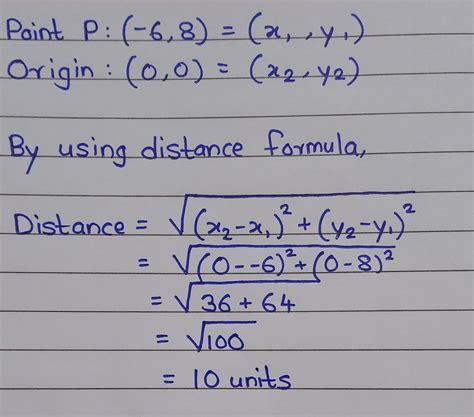 Point P : (-6, 8) = (x₁, y₁)
Origin : (0, 0) = (x₂, y₂)
By using distance formula,
Distance = √(x₂-x₁)² + (y₂-y₁)²
= √(0--6)² + (0-8)²
= √36 + 64
= √100
= 10 units